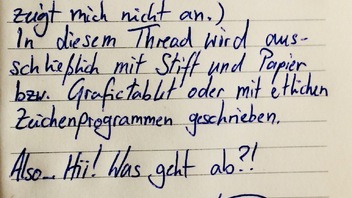 zeigt mich nicht an.)
In diesem Thread wird aus-
schließlich mit Stift und Papier
bzw. Grafictablet oder mit etlichen
Zeichenprogrammen geschrieben.
Also... Hii! Was geht ab?!